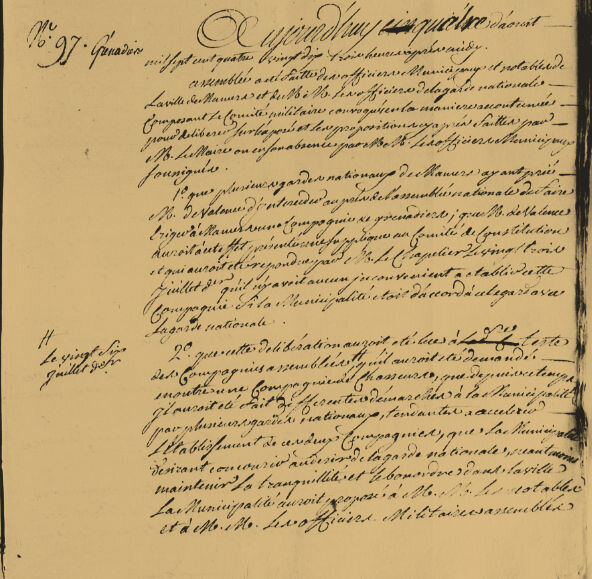 N.º 97. Grenadiers
Aujourd'huy cinquième d'aoust
mil sept cent quatre vingt dix trois heures après midy.
assemblée a été faitte des officiers Municipaux et notables de
la ville de Mamers et de M. M. les officiers de la garde nationale
Composant le Comité militaire convoqués en la manière accoutumée
pour deliberer sur les propositions cy après faittes par
M. Le Maire ou en son absence par M. M. les officiers Municipaux
soussignés.
1.º que plusieurs gardes nationaux de Mamers ayant prié
M. de Valence d'interceder auprès de l'assemblée nationale de faire
Eriger à Mamers une Compagnie de grenadiers, que M. de Valence
auroit à cet effet présenté une supplique au Comité de Constitution
et qui auroit été repondue par M. Le Chapelier le vingt trois
juillet dr qu'il n'y avoit aucun inconvenient à etablir cette
Compagnie si la Municipalité etoit d'accord à cet egard avec
la garde nationale.
H
Le vingt six
juillet dr
2.º que cette deliberation auroit été lüe à la tete
des Compagnies assemblées H qu'il auroit été demandé
en outre une Compagnie de Chasseurs, que depuis ce temps
il auroit été fait differentes demarches à la Municipalité
par plusieurs gardes nationaux, tendantes à accelerer
L'Etablissement de ces deux Compagnies, que la Municipalité
désirant concourir au desir de la garde nationale, neantmoins
maintenir la tranquillité et le bon ordre dans la ville
La Municipalité auroit proposé à M. M. Les notables
et à M. M. Les officiers Militaires assemblés